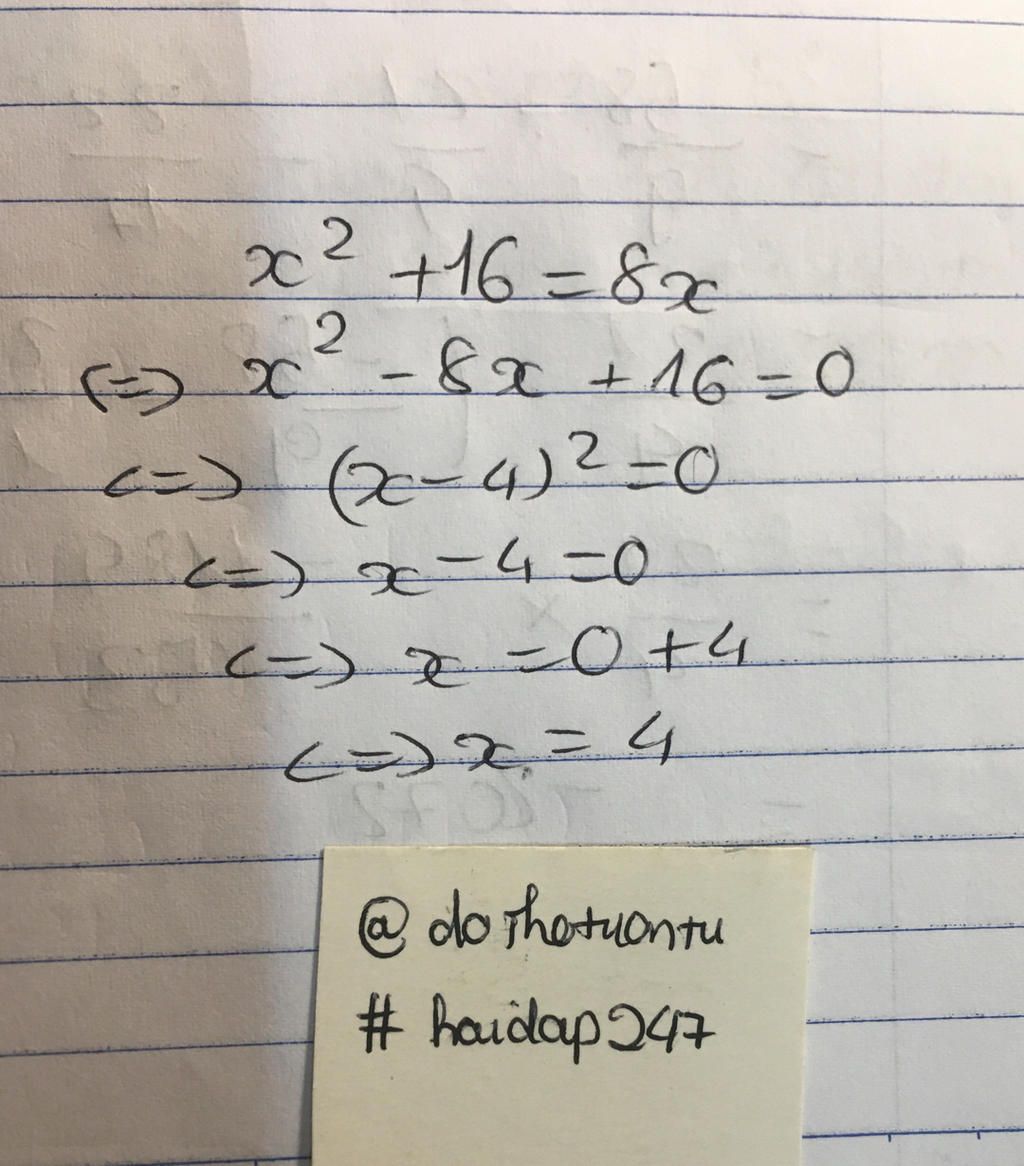 x² + 16 = 8x
<=> x² - 8x + 16 = 0
<=> (x - 4)² = 0
<=> x - 4 = 0
<=> x = 0 + 4
<=> x = 4
@dothetuantu
# hoidap247